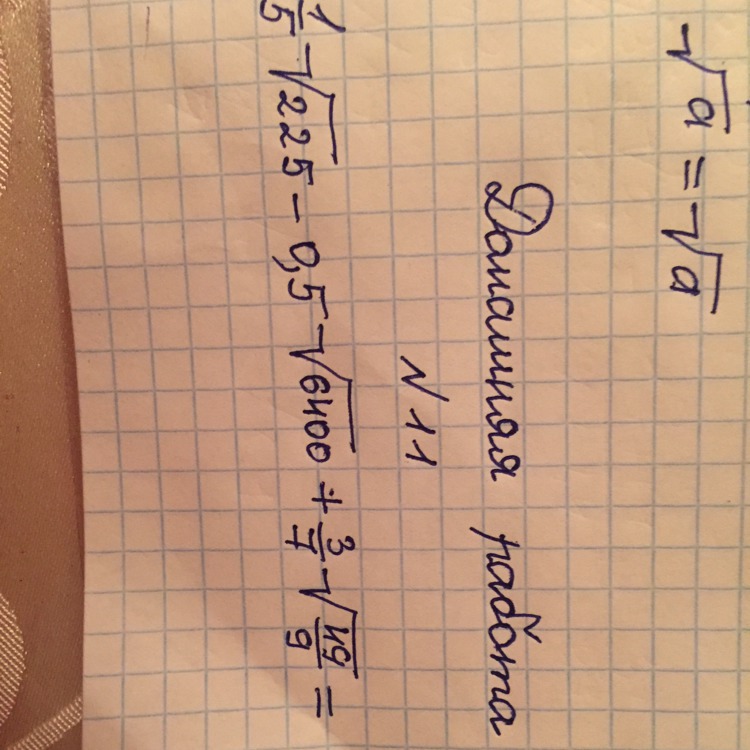 √a = √a
Домашняя работа
N 11
1/5 √225 - 0,5 √6400 + 3/7 √49/9 =